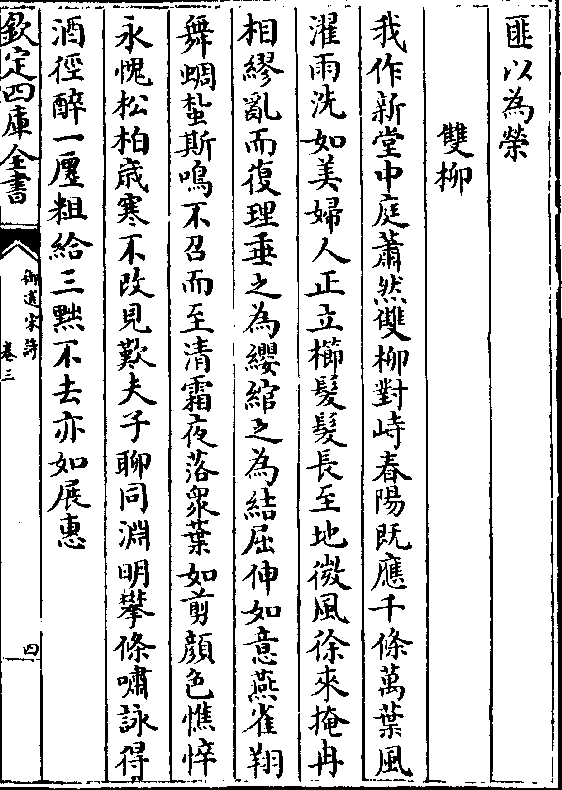 匪以為榮
雙柳
我作新堂中庭蕭然雙柳對峙春陽既應千條萬葉風
濯雨洗如美婦人正立櫛髮髮長至地微風徐來掩冉
相繆亂而復理垂之為纓綰之為結屈伸如意燕雀翔
舞蜩蜇斯鳴不召而至清霜夜落衆葉如剪顔色憔悴
永愧松柏歲寒不改見歎夫子聊同淵明攀條嘯詠得
酒徑醉一廛粗給三黜不去亦如展惠
欽定四庫全書
御選宋詩
卷三
四